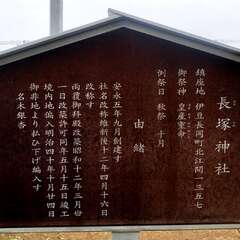 長塚神社
鎮座地 伊豆長岡町北江間一三五七
御祭神 皇産霊命
例祭日 秋祭 十月
由緒
安永五年九月創建す
社名改称維新後十二年四月十六日
改称す
雨覆御拝殿改築昭和十二年三月廿
一日改築許可同年五月十五日竣工
境内地編入明治四十年十月廿四日
御料地より払ひ下げ編入す
名木銀杏